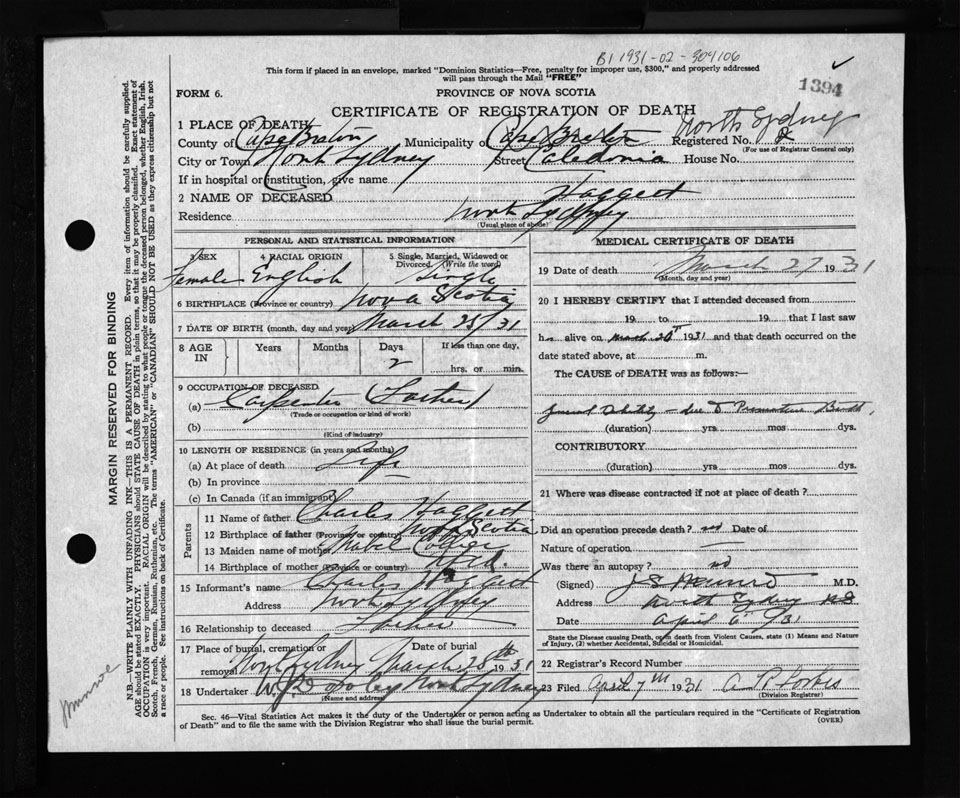 B1 1931-02-304106
This form if placed in an envelope, marked "Dominion Statistics—Free, penalty for improper use, $300," and properly addressed
will pass through the Mail "FREE"
1394
FORM 6.
PROVINCE OF NOVA SCOTIA
CERTIFICATE OF REGISTRATION OF DEATH
North Sydney
1 PLACE OF DEATH
County of Cape Breton Municipality of Cape Breton Registered No.
(For use of Registrar General only)
City or Town North Sydney Street Caledonia House No.
If in hospital or institution, give name
2 NAME OF DECEASED Haggett
Residence North Sydney
(Usual place of abode)
PERSONAL AND STATISTICAL INFORMATION
3 SEX 4 RACIAL ORIGIN 5 Single, Married, Widowed or
Divorced. (Write the word)
Female English Single
6 BIRTHPLACE (Province or country) Nova Scotia
7 DATE OF BIRTH (month, day and year) March 25/31
8 AGE IN Years Months Days If less than one day,
2 hrs. or min.
9 OCCUPATION OF DECEASED
(a) Carpenter (Father)
(Trade or occupation or kind of work)
(b)
(Kind of industry)
10 LENGTH OF RESIDENCE (in years and months)
(a) At place of death Life
(b) In province
(c) In Canada (if an immigrant)
Parents
11 Name of father Charles Haggett
12 Birthplace of father (Province or country) Nova Scotia
13 Maiden name of mother Mabel
14 Birthplace of mother (Province or country)
15 Informant's name Charles Haggett
Address North Sydney
16 Relationship to deceased Father
17 Place of burial, cremation or removal Date of burial
North Sydney March 28th 1931
18 Undertaker North Sydney
(Name and address)
MEDICAL CERTIFICATE OF DEATH
19 Date of death March 27 1931
(Month, day and year)
20 I HEREBY CERTIFY that I attended deceased from
19 to 19 that I last saw
h alive on March 26th 1931 and that death occurred on the
date stated above, at m.
The CAUSE of DEATH was as follows:—
General Debility – due to Premature Birth.
(duration) yrs mos dys.
CONTRIBUTORY
(duration) yrs mos dys.
21 Where was disease contracted if not at place of death?
Did an operation precede death? no Date of
Nature of operation —
Was there an autopsy? no
(Signed) M.D.
Address North Sydney NS
Date April 6/31
State the Disease causing Death, or in death from Violent Causes, state (1) Means and Nature
of Injury, (2) whether Accidental, Suicidal or Homicidal.
22 Registrar's Record Number
23 Filed April 7th 1931 A. P. Forbes
(Division Registrar)
Sec. 46—Vital Statistics Act makes it the duty of the Undertaker or person acting as Undertaker to obtain all the particulars required in the "Certificate of Registration
of Death" and to file the same with the Division Registrar who shall issue the burial permit.
(OVER)
MARGIN RESERVED FOR BINDING
N.B.—WRITE PLAINLY WITH UNFADING INK—THIS IS A PERMANENT RECORD. Every item of information should be carefully supplied.
AGE should be stated EXACTLY. PHYSICIANS should STATE CAUSE OF DEATH in plain terms, so that it may be properly classified. Exact statement of
OCCUPATION is very important. RACIAL ORIGIN will be described by stating to what people or tongue the deceased person belonged, whether English, Irish,
Scotch, French, German, Russian, Ruthenian, etc. The terms "AMERICAN" or "CANADIAN" SHOULD NOT BE USED as they express citizenship but not
a race or people. See instructions on back of Certificate.